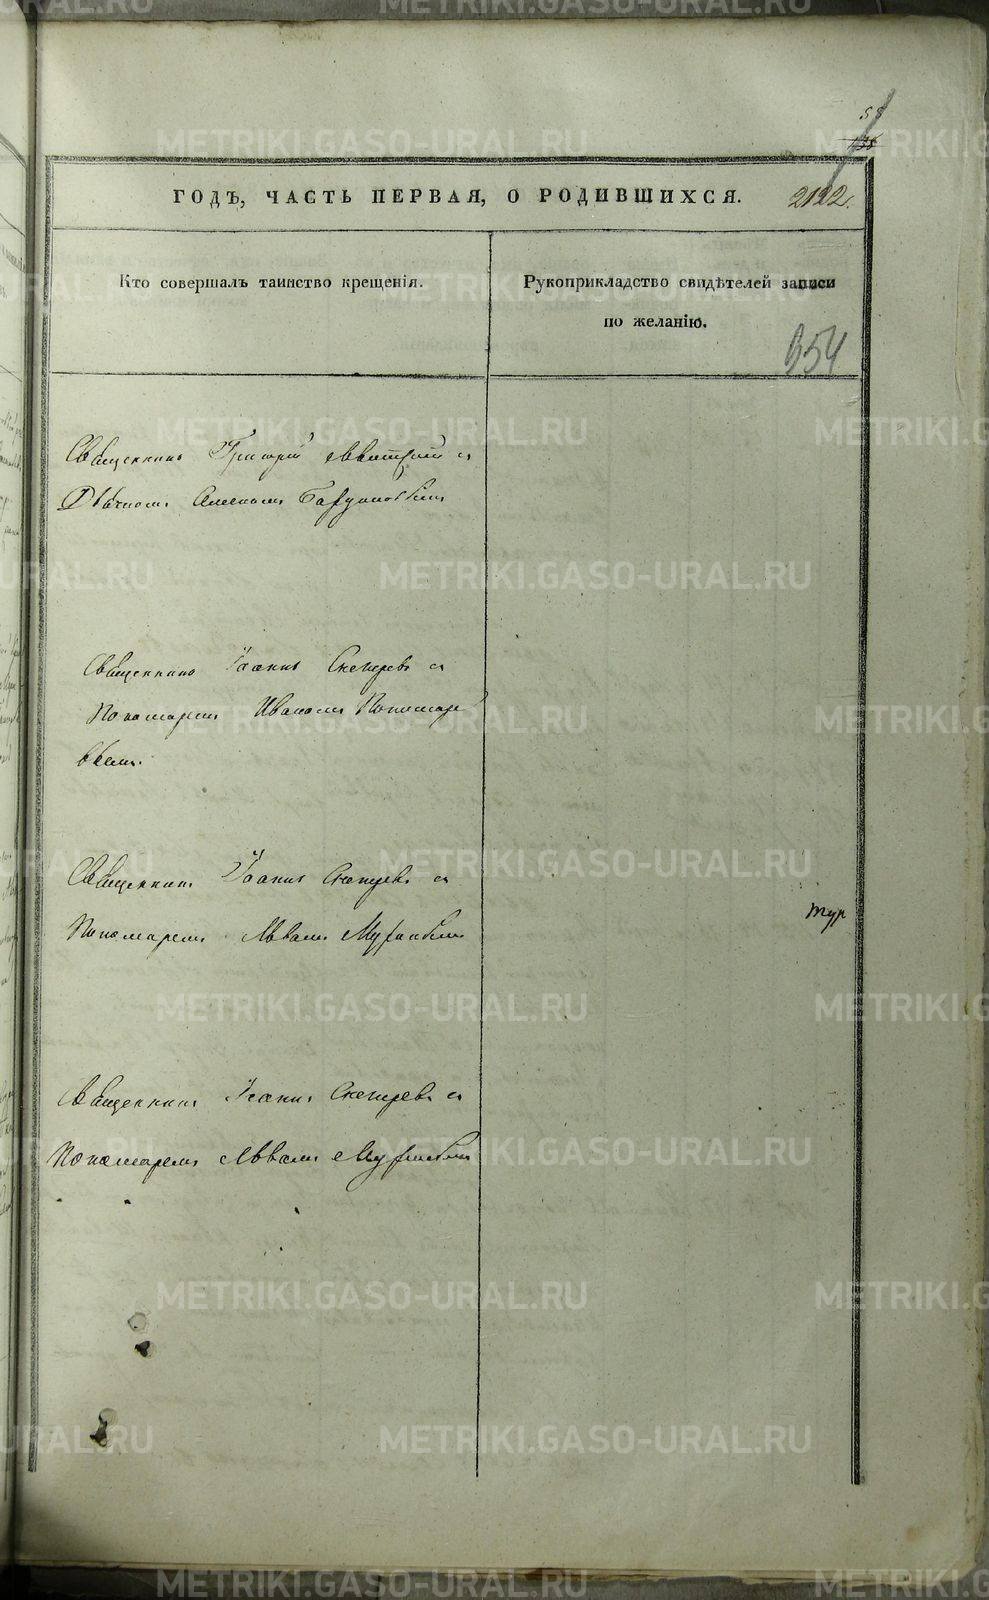 ГОДЪ, ЧАСТЬ ПЕРВАЯ, О РОДИВШИХСЯ. 2122.
Кто совершалъ таинство крещенія.
Рукоприкладство свидѣтелей записи
по желанію.
354
Священникъ Григорій съ
Дьячкомъ Алексѣемъ
Священникъ Іоаннъ Снегирев съ
Пономаремъ Иваномъ Пономаре
вымъ.
Священникъ Іоаннъ Снегирев съ
Пономаремъ Львомъ
Священникъ Іоаннъ Снегирев съ
Пономаремъ Львомъ
METRIKI.GASO-URAL.RU